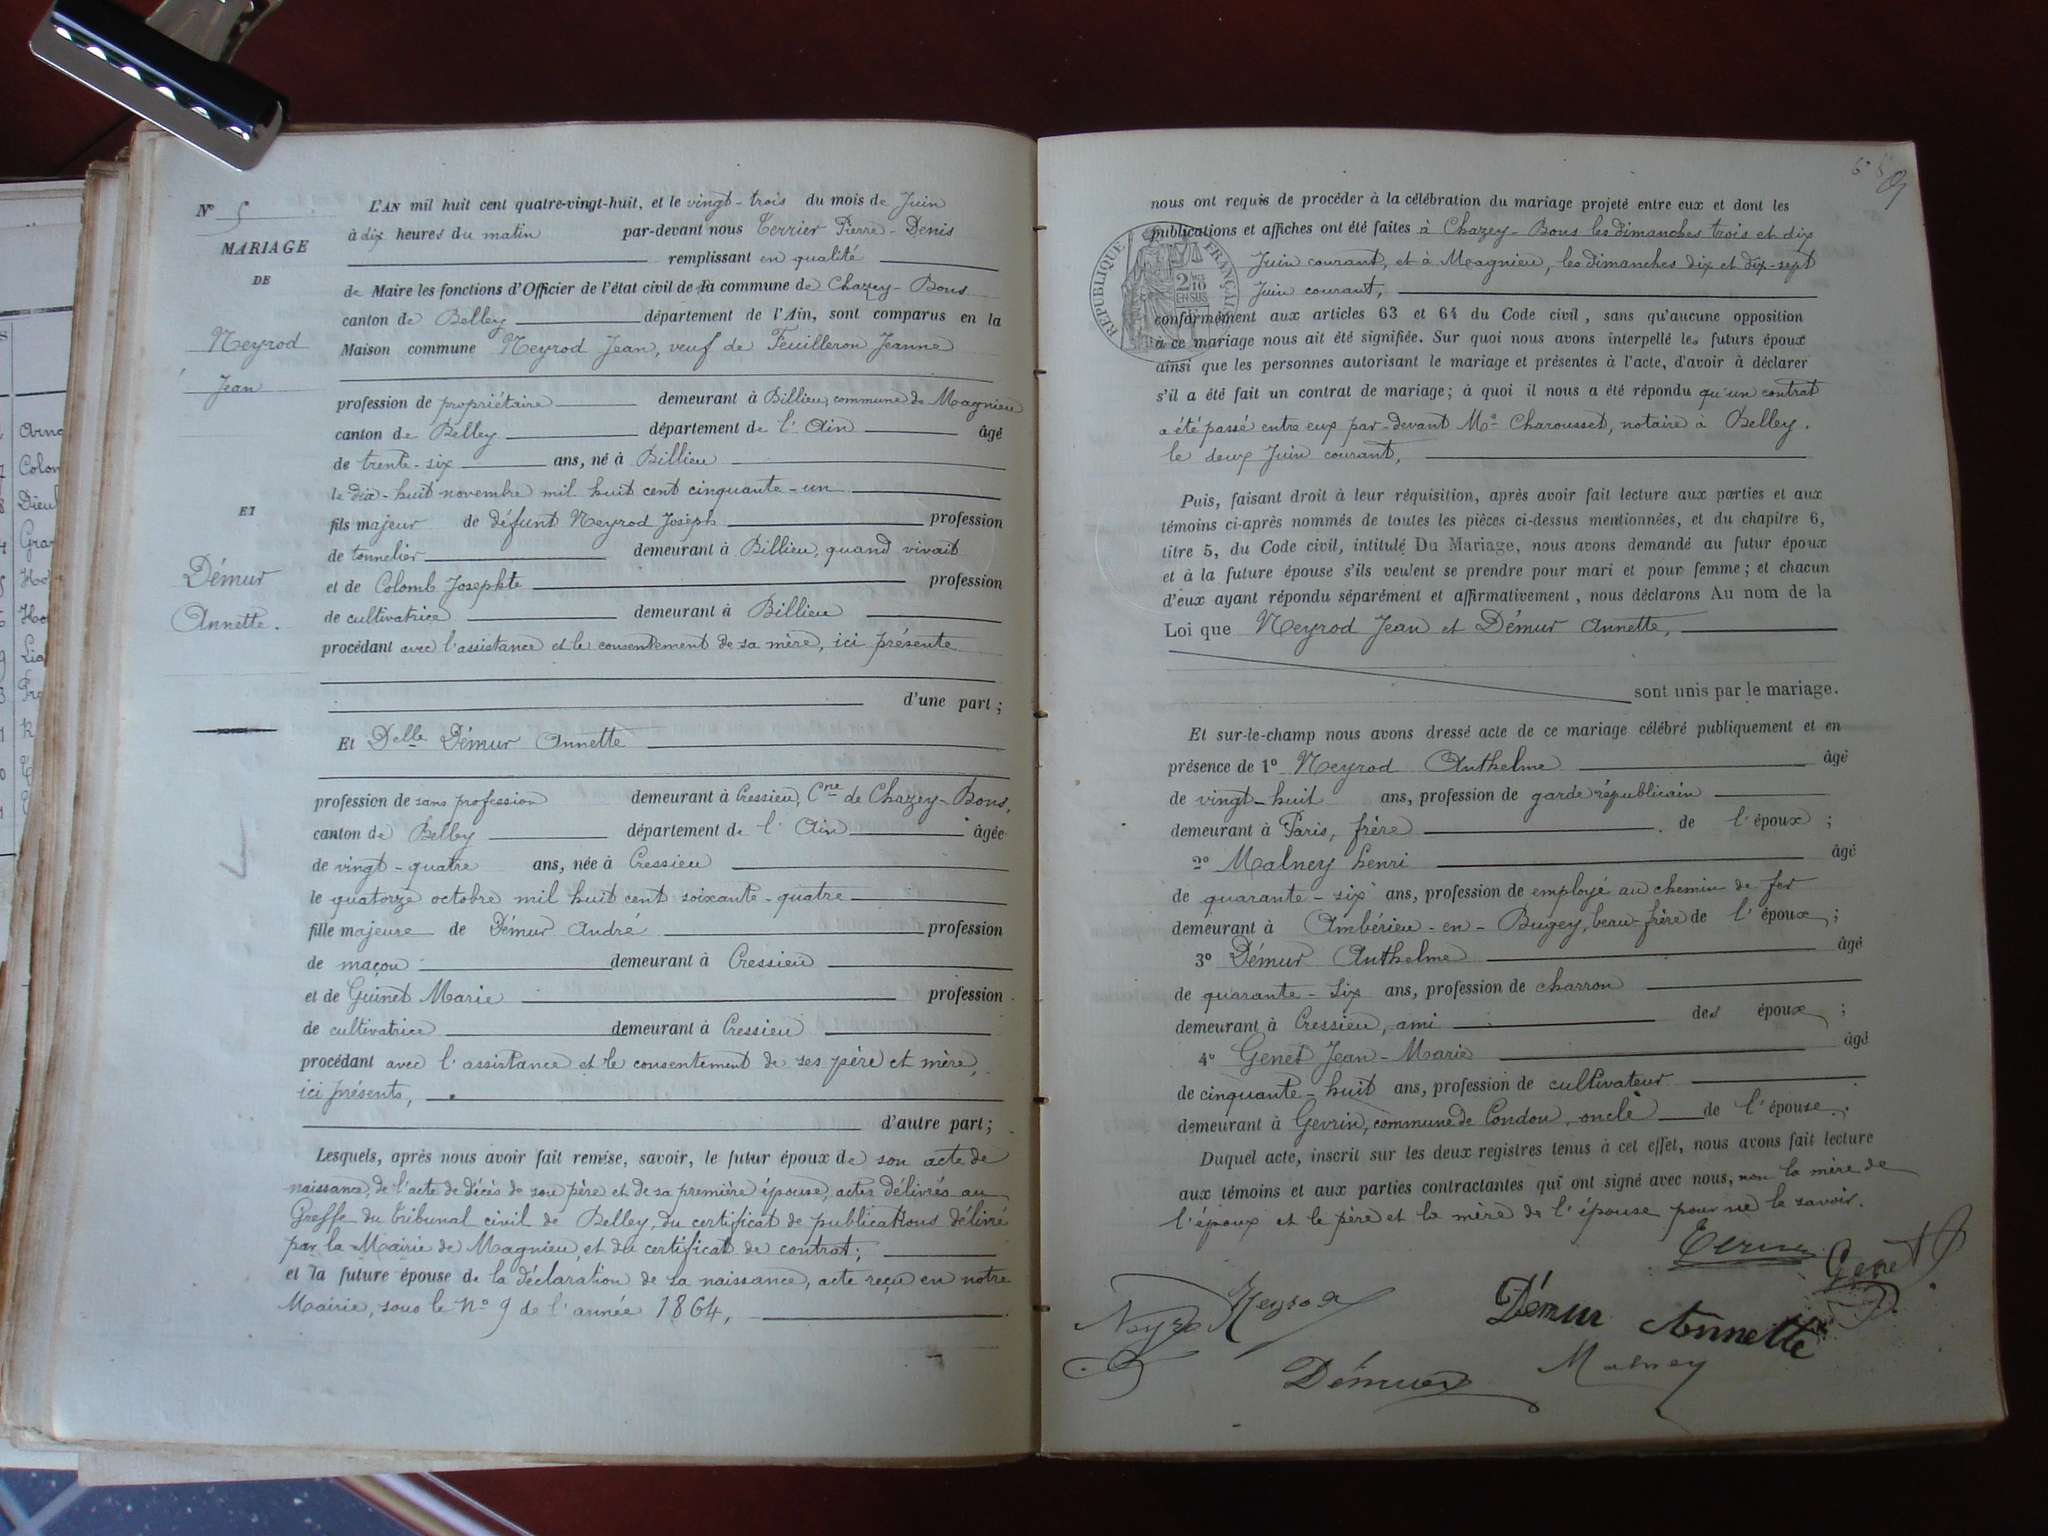 N° 5
MARIAGE
DE
Neyrod
Jean
ET
Démur
Annette.
L'AN mil huit cent quatre-vingt-huit, et le vingt-trois du mois de Juin
à dix heures du matin par-devant nous Terrier Pierre-Denis
remplissant en qualité
de Maire les fonctions d'Officier de l'état civil de la commune de Chazey-Bons
canton de Belley département de l'Ain, sont comparus en la
Maison commune Neyrod Jean, veuf de Feuilleron Jeanne
profession de propriétaire demeurant à Billieu, commune de Magnieu
canton de Belley département de l'Ain âgé
de trente-six ans, né à Billieu
le dix-huit novembre mil huit cent cinquante-un
fils majeur de défunt Neyrod Joseph profession
de tonnelier demeurant à Billieu, quand vivait
et de Colomb Josephte profession
de cultivatrice demeurant à Billieu
procédant avec l'assistance et le consentement de sa mère, ici présente
d'une part;
Et Delle Démur Annette
profession de sans profession demeurant à Cressieu, Cne de Chazey-Bons,
canton de Belley département de l'Ain âgée
de vingt-quatre ans, née à Cressieu
le quatorze octobre mil huit cent soixante-quatre
fille majeure de Démur André profession
de maçon demeurant à Cressieu
et de Guinet Marie profession
de cultivatrice demeurant à Cressieu
procédant avec l'assistance et le consentement de ses père et mère,
ici présents,
d'autre part;
Lesquels, après nous avoir fait remise, savoir, le futur époux de son acte de
naissance, de l'acte de décès de son père et de sa première épouse, actes délivrés au
Greffe du tribunal civil de Belley, du certificat de publications délivré
par la Mairie de Magnieu, et du certificat de contrat;
et la future épouse de la déclaration de sa naissance, acte reçu en notre
Mairie, sous le N° 9 de l'année 1864,
nous ont requis de procéder à la célébration du mariage projeté entre eux et dont les
publications et affiches ont été faites à Chazey-Bons les dimanches trois et dix
Juin courant, et à Magnieu, les dimanches dix et dix-sept
Juin courant,
RÉPUBLIQUE FRANÇAISE
2/10
EN SUS
conformément aux articles 63 et 64 du Code civil, sans qu'aucune opposition
à ce mariage nous ait été signifiée. Sur quoi nous avons interpellé les futurs époux
ainsi que les personnes autorisant le mariage et présentes à l'acte, d'avoir à déclarer
s'il a été fait un contrat de mariage; à quoi il nous a été répondu qu'un contrat
a été passé entre eux par-devant Me Charousset, notaire à Belley.
le deux Juin courant,
Puis, faisant droit à leur réquisition, après avoir fait lecture aux parties et aux
témoins ci-après nommés de toutes les pièces ci-dessus mentionnées, et du chapitre 6,
titre 5, du Code civil, intitulé Du Mariage, nous avons demandé au futur époux
et à la future épouse s'ils veulent se prendre pour mari et pour femme; et chacun
d'eux ayant répondu séparément et affirmativement, nous déclarons Au nom de la
Loi que Neyrod Jean et Démur Annette,
sont unis par le mariage.
Et sur-le-champ nous avons dressé acte de ce mariage célébré publiquement et en
présence de 1° Neyrod Anthelme âgé
de vingt-huit ans, profession de garde républicain
demeurant à Paris, frère de l'époux;
2° Malney henri âgé
de quarante-six ans, profession de employé au chemin de fer
demeurant à Ambérieu-en-Bugey, beau-frère de l'époux;
3° Démur Anthelme âgé
de quarante-six ans, profession de charron
demeurant à Cressieu, ami des époux;
4° Genet Jean-Marie âgé
de cinquante-huit ans, profession de cultivateur
demeurant à Gevrin, commune de Condon, oncle de l'épouse.
Duquel acte, inscrit sur les deux registres tenus à cet effet, nous avons fait lecture
aux témoins et aux parties contractantes qui ont signé avec nous, non la mère de
l'époux et le père et la mère de l'épouse pour ne le savoir.
Genet
Neyrod
Démur Annette
Démur
Malney